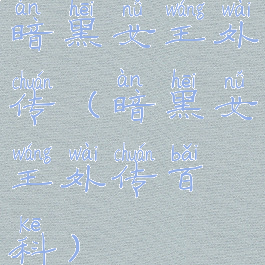 àn hēi nǚ wáng wài
暗黑女王外
chuán àn hēi nǚ
传（暗黑女
wáng wài chuán bǎi
王外传百
kē
科）